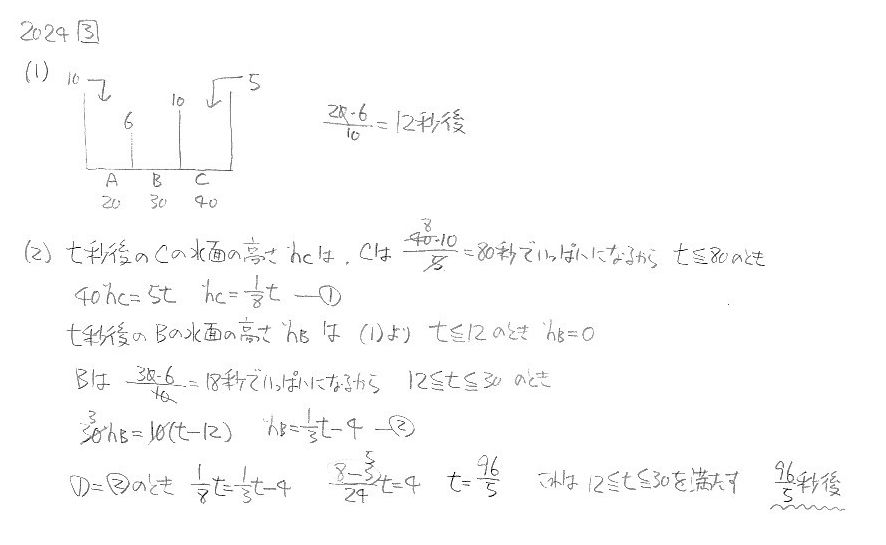 2024 3
(1) 10 5
6 10
A B C
20 30 40
20·6/10 = 12秒後
(2) t秒後のCの水面の高さhcは、Cは 40·10/5 = 80秒でいっぱいになるから t≦80のとき
8
40hc=5t hc=1/8t ―①
t秒後のBの水面の高さhBは (1)より t≦12のとき hB=0
Bは 30·6/10 = 18秒でいっぱいになるから 12≦t≦30 のとき
3
30hB=10(t-12) hB=1/3t-4 ―②
①=②のとき 1/8t=1/3t-4 8-3/24t=4 t=96/5 これは12≦t≦30を満たす 96/5秒後
5